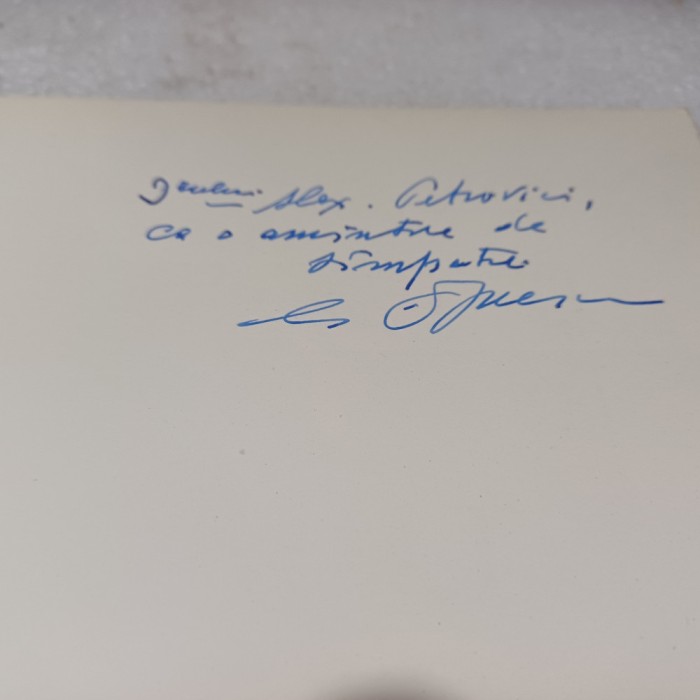 Dlui Alex. Petrovici,
ca o amintire de
simpatie